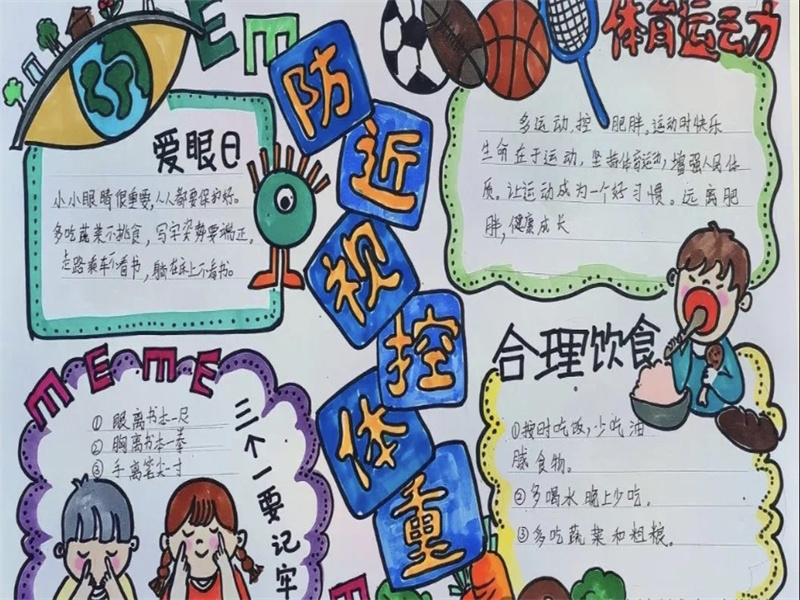 Em
防近视控体重
体育运动
爱眼日
小小眼睛很重要,人人都要保护好。
多吃蔬菜不挑食,写字姿势要端正。
走路乘车不看书,躺在床上不看书。
多运动,控肥胖。运动时快乐
生命在于运动,坚持体育运动,增强人民体
质。让运动成为一个好习惯。远离肥
胖,健康成长
MEME
三个一要记牢
①眼离书本一尺
②胸离书本一拳
③手离笔尖一寸
合理饮食
①按时吃饭,少吃油
腻食物。
②多喝水晚上少吃。
③多吃蔬菜和粗粮。